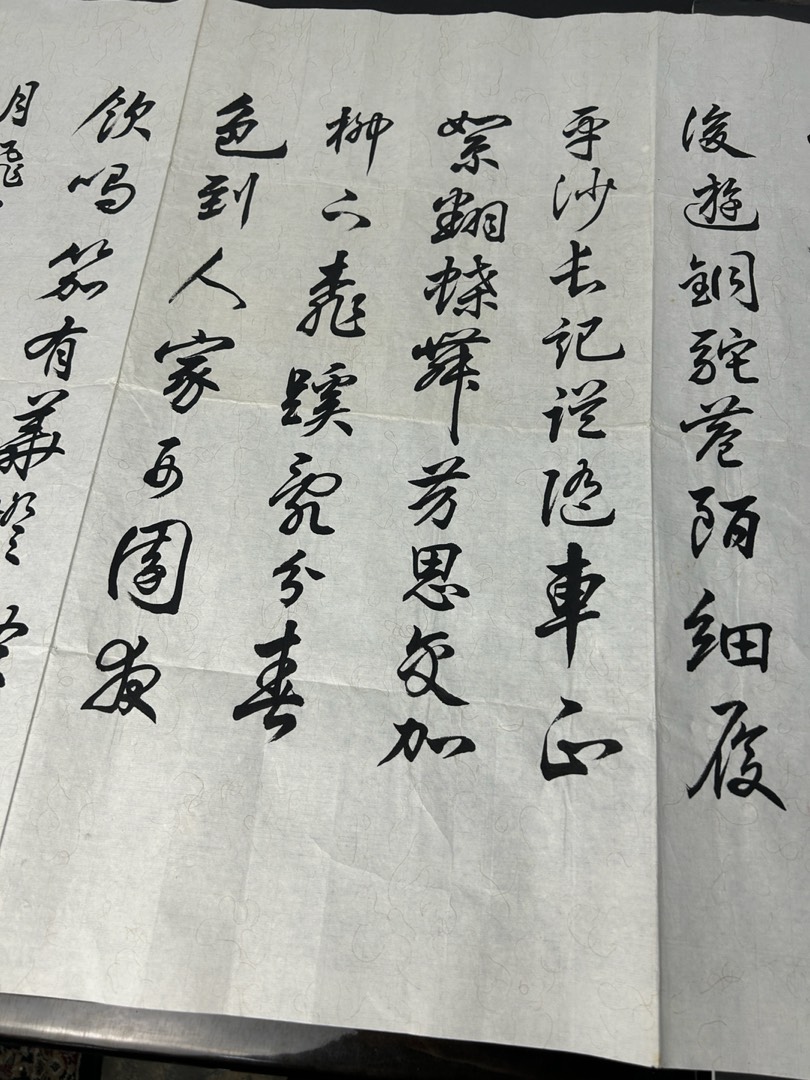 俊遊銅駝巷陌細履
平沙長記誤随車正
絮翻蝶舞芳思交加
柳下桃蹊亂分春
色到人家西園夜
飲鳴笳有華燈
月飛